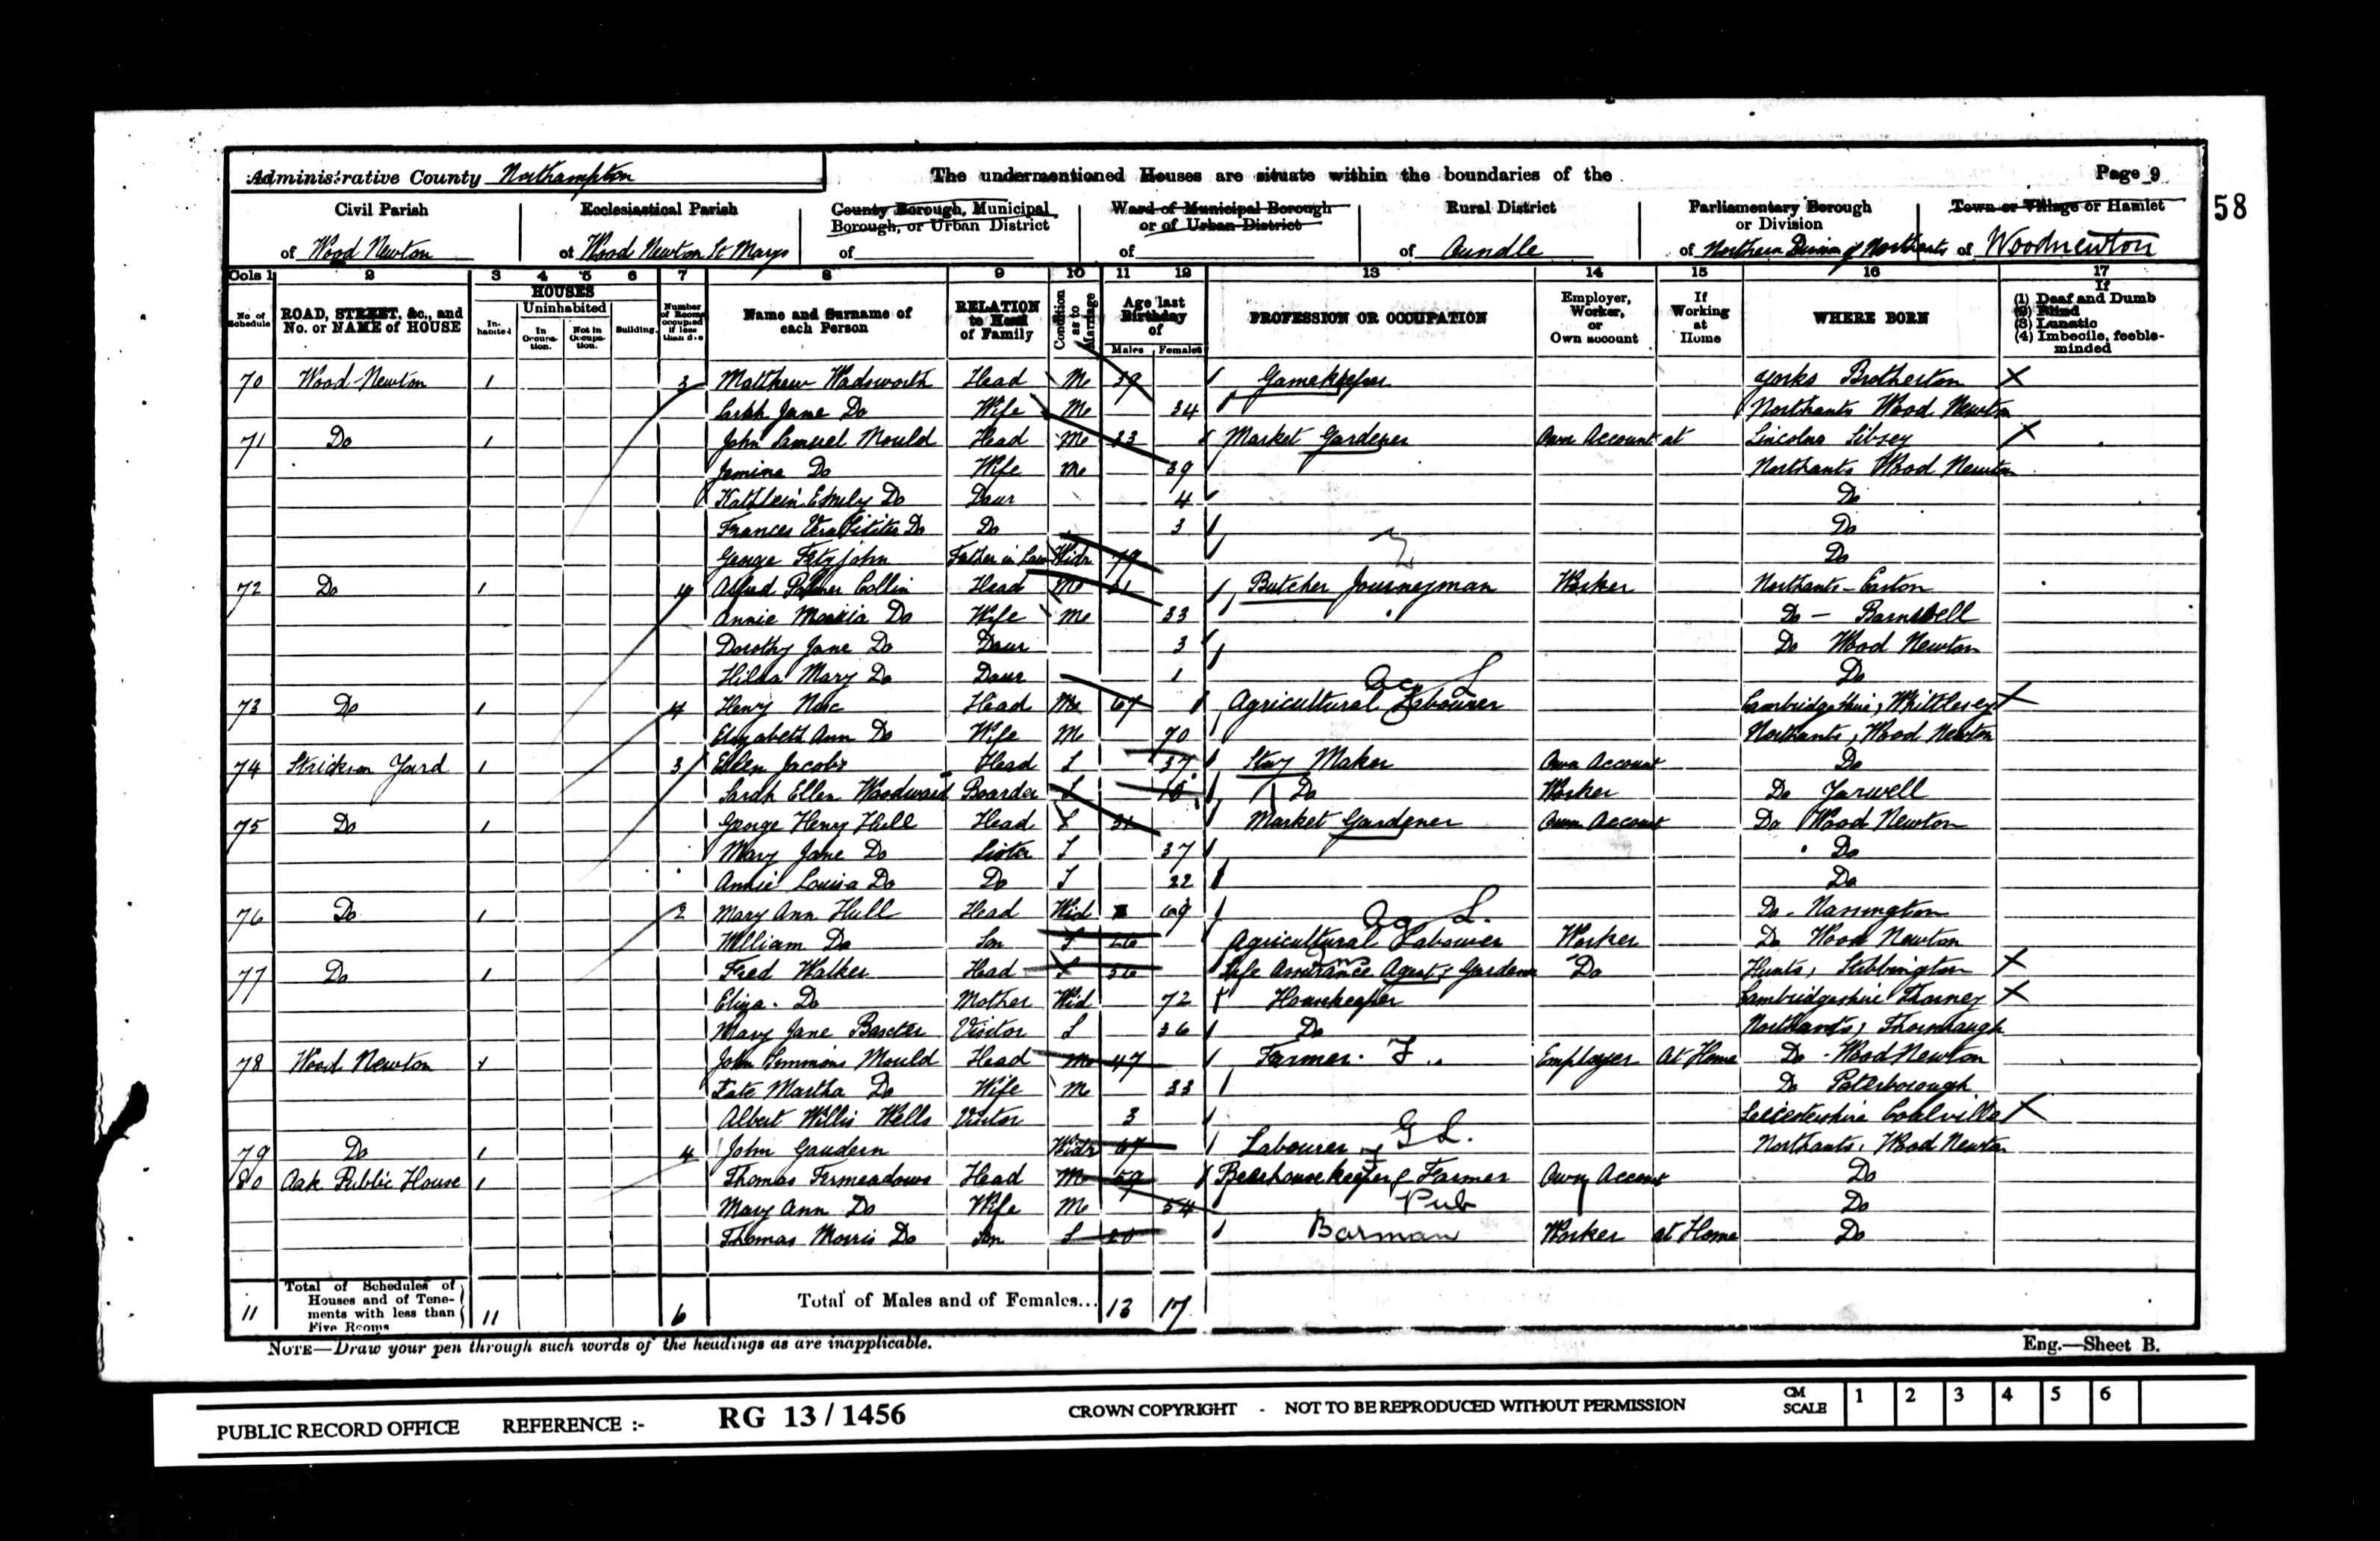 Administrative County Northampton
The undermentioned Houses are situate within the boundaries of the
Page 9
58
Civil Parish of Wood Newton
Ecclesiastical Parish of Wood Newton St Marys
County Borough, Municipal Borough, or Urban District of
Ward of Municipal Borough or of Urban District of
Rural District of Oundle
Parliamentary Borough or Division of Northern Division of Northants
Town or Village or Hamlet of Woodnewton
Cols 1 2 3 4 5 6 7 8 9 10 11 12 13 14 15 16 17
No of Schedule
ROAD, STREET, &c., and No. or NAME of HOUSE
HOUSES
Inhabited
Uninhabited
In Occupation.
Not in Occupation.
Building
Number of Rooms occupied if less than five
Name and Surname of each Person
RELATION to Head of Family
Condition as to Marriage
Age last Birthday of
Males Females
PROFESSION OR OCCUPATION
Employer, Worker, or Own account
If Working at Home
WHERE BORN
If (1) Deaf and Dumb (2) Blind (3) Lunatic (4) Imbecile, feeble-minded
70 Wood Newton 1 3 Matthew Wadsworth Head M 39 Gamekeeper Yorks Brotherton X
Sarah Jane Do Wife M 34 Northants Wood Newton
71 Do 1 John Samuel Mould Head M Market Gardener Own Account at Lincolns Sibsey X
Jemina Do Wife M 39 Northants Wood Newton
Kathlein Emily Do Daur 4 Do
Frances Vera Do Do 3 Do
George Fitzjohn Father in Law Widr 79 Do
72 Do 1 4 Alfred Palmer Collin Head M Butcher Journeyman Worker Northants - Easton
Annie Maria Do Wife M 33 Do - Barnwell
Dorothy Jane Do Daur 3 Do Wood Newton
Hilda Mary Do Daur 1 Do
73 Do 1 4 Henry Head M 67 Agricultural Labourer Ag L Cambridgeshire, Whittlesey X
Elizabeth Ann Do Wife M 70 Northants, Wood Newton
74 Strickson Yard 1 3 Ellen Jacobs Head S 37 Stay Maker Own Account Do
Sarah Ellen Woodward Boarder S Do Worker Do Yarwell
75 Do 1 George Henry Hull Head S 31 Market Gardener Own Account Do Wood Newton
Mary Jane Do Sister S 37 Do
Annie Louisa Do Do S 22 Do
76 Do 1 2 Mary Ann Hull Head Wid 69 Do - Nassington
William Do Son S 26 Agricultural Labourer Ag L. Worker Do Wood Newton
77 Do 1 Fred Walker Head S 36 Life Assurance Agent & Gardener Do Hunts, Stibbington X
Eliza. Do Mother Wid 72 Housekeeper Cambridgeshire Thorney X
Mary Jane Baxter Visitor S 36 Do Northants, Thornhaugh
78 Wood Newton 1 John Simmons Mould Head M 47 Farmer. F.. Employer At Home Do - Wood Newton
Kate Martha Do Wife M 33 Do Peterborough
Albert Willis Wells Visitor 3 Leicestershire Coalville X
79 Do 1 4 John Gaudern Widr 67 Labourer G L. Northants, Wood Newton
80 Oak Public House 1 Thomas Firmeadows Head M 59 Beerhouse keeper & Farmer Own Account Do
Mary Ann Do Wife M 54 Pub Do
Thomas Morris Do Son S 20 Barman Worker at Home Do
11 Total of Schedules of Houses and of Tenements with less than Five Rooms 11 6 Total of Males and of Females... 13 17
NOTE—Draw your pen through such words of the headings as are inapplicable.
Eng.—Sheet B.
PUBLIC RECORD OFFICE REFERENCE :- RG 13 / 1456 CROWN COPYRIGHT - NOT TO BE REPRODUCED WITHOUT PERMISSION CM SCALE 1 2 3 4 5 6